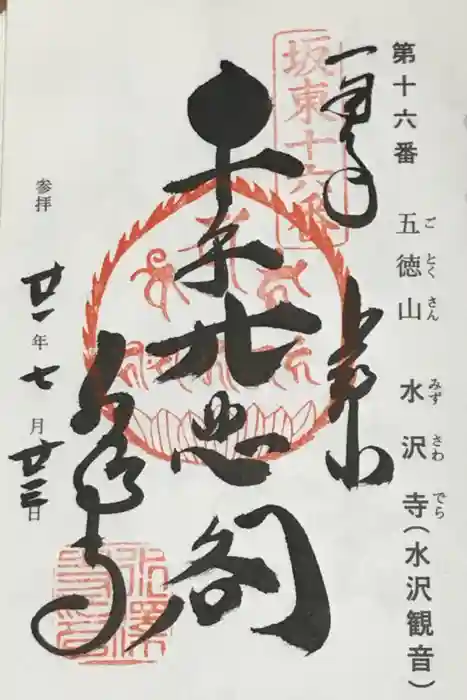 第十六番 五徳山 水沢寺(水沢観音)
ご とく さん みず さわ でら
坂東十六番
千手大悲閣
水澤寺
参拝 廿一年七月廿三日